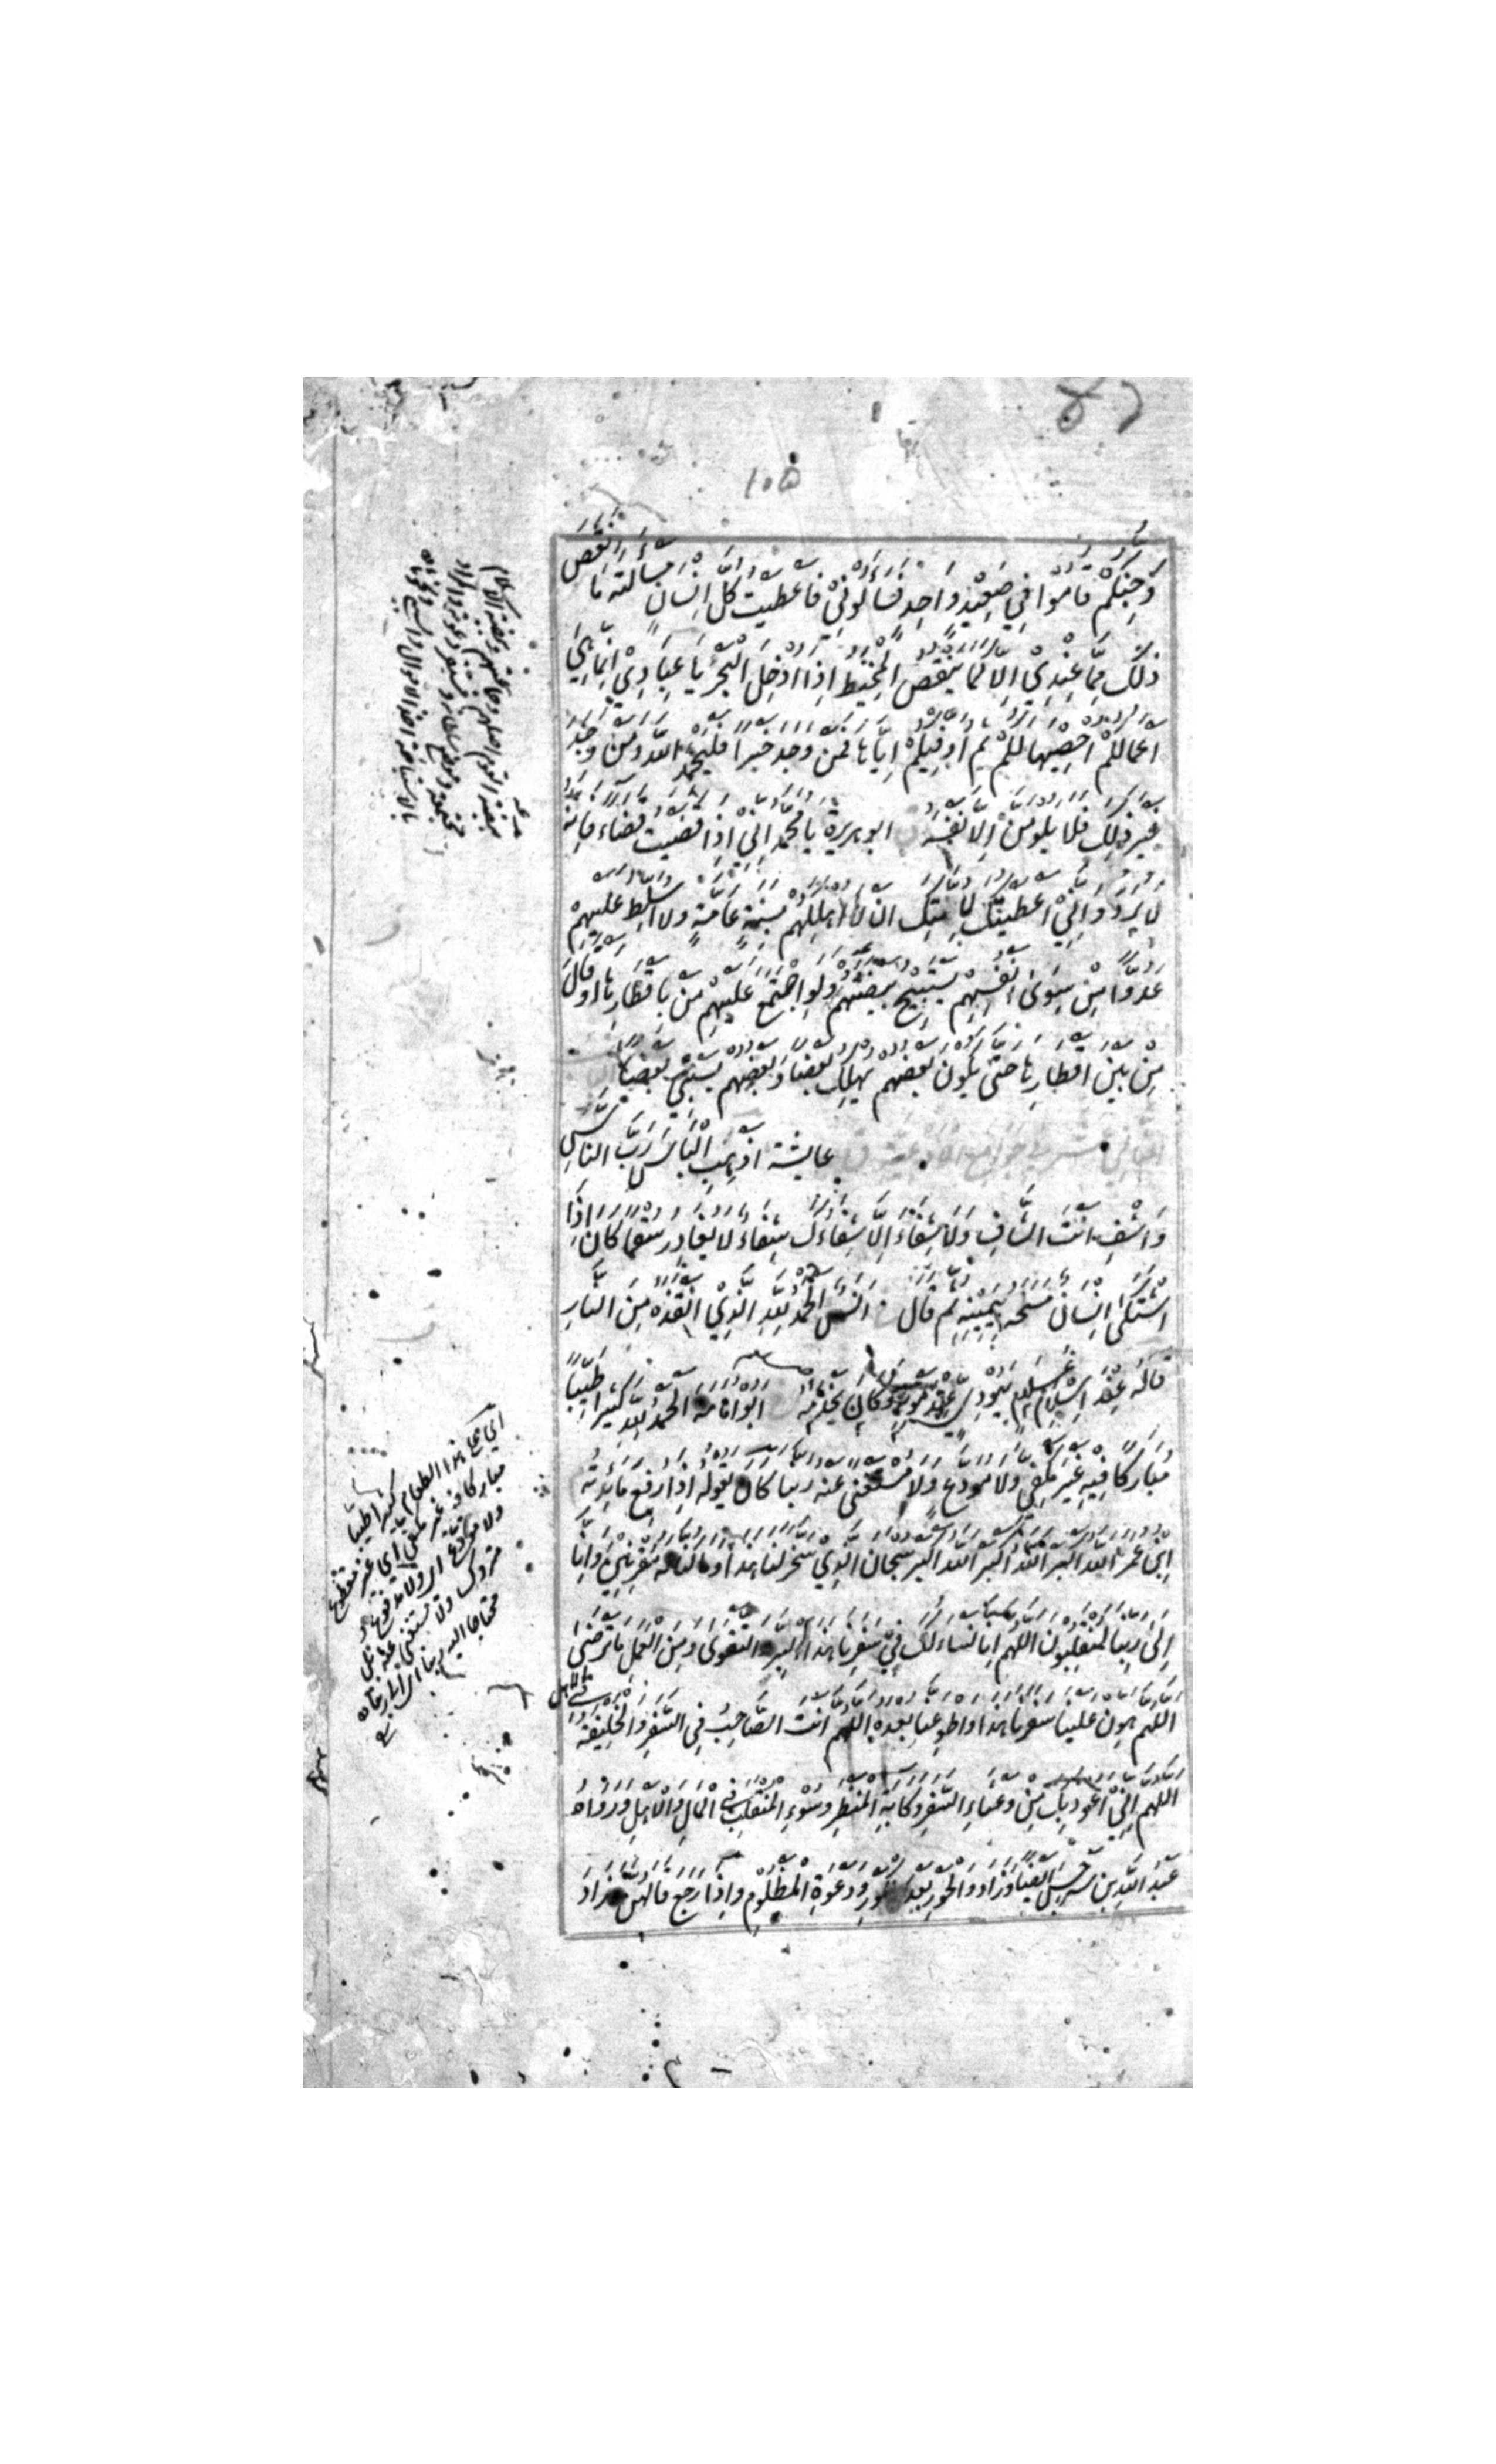 ١٠٥
وَجِنَّكُمْ قَامُوْا فِيْ صَعِيْدٍ وَاحِدٍ فَسَأَلُوْنِيْ فَاَعْطَيْتُ كُلَّ اِنْسَانٍ مَسْأَلَتَهُ مَا نَقَصَ
ذٰلِكَ مِمَّا عِنْدِيْ اِلَّا كَمَا يَنْقُصُ الْمِخْيَطُ اِذَا اُدْخِلَ الْبَحْرَ يَا عِبَادِيْ اِنَّمَا هِيَ
اَعْمَالُكُمْ اُحْصِيْهَا لَكُمْ ثُمَّ اُوَفِّيْكُمْ اِيَّاهَا فَمَنْ وَجَدَ خَيْرًا فَلْيَحْمَدِ اللّٰهَ وَمَنْ وَجَدَ
غَيْرَ ذٰلِكَ فَلَا يَلُوْمَنَّ اِلَّا نَفْسَهُ ابو هريرة يَا مُحَمَّدُ اِنِّيْ اِذَا قَضَيْتُ قَضَاءً فَاِنَّهُ
لَا يُرَدُّ وَاِنِّيْ اَعْطَيْتُكَ لِاُمَّتِكَ اَنْ لَا اُهْلِكَهُمْ بِسَنَةٍ عَامَّةٍ وَلَا اُسَلِّطَ عَلَيْهِمْ
عَدُوًّا مِنْ سِوٰى اَنْفُسِهِمْ يَسْتَبِيْحُ بَيْضَتَهُمْ وَلَوِ اجْتَمَعَ عَلَيْهِمْ مَنْ بِاَقْطَارِهَا اَوْ قَالَ
مَنْ بَيْنَ اَقْطَارِهَا حَتّٰى يَكُوْنَ بَعْضُهُمْ يُهْلِكُ بَعْضًا وَبَعْضُهُمْ يَسْبِيْ بَعْضًا
عايشة اَذْهِبِ الْبَأْسَ رَبَّ النَّاسِ
وَاشْفِ اَنْتَ الشَّافِيْ وَلَا شِفَاءَ اِلَّا شِفَاؤُكَ شِفَاءً لَا يُغَادِرُ سَقَمًا كَانَ اِذَا
اشْتَكٰى اِنْسَانٌ مَسَحَهُ بِيَمِيْنِهِ ثُمَّ قَالَ انس اَلْحَمْدُ لِلّٰهِ الَّذِيْ اَنْقَذَهُ مِنَ النَّارِ
قَالَهُ عِنْدَ اِسْلَامِ يَهُوْدِيٍّ وَكَانَ يَخْدُمُهُ ابو امامة اَلْحَمْدُ لِلّٰهِ كَثِيْرًا طَيِّبًا
مُبَارَكًا فِيْهِ غَيْرَ مَكْفِيٍّ وَلَا مُوَدَّعٍ وَلَا مُسْتَغْنًى عَنْهُ رَبَّنَا كَانَ يَقُوْلُهُ اِذَا رَفَعَ مَائِدَتَهُ
اِبْنُ عُمَرَ اَللّٰهُ اَكْبَرُ اَللّٰهُ اَكْبَرُ اَللّٰهُ اَكْبَرُ سُبْحَانَ الَّذِيْ سَخَّرَ لَنَا هٰذَا وَمَا كُنَّا لَهُ مُقْرِنِيْنَ وَاِنَّا
اِلٰى رَبِّنَا لَمُنْقَلِبُوْنَ اَللّٰهُمَّ اِنَّا نَسْأَلُكَ فِيْ سَفَرِنَا هٰذَا الْبِرَّ وَالتَّقْوٰى وَمِنَ الْعَمَلِ مَا تَرْضٰى
اَللّٰهُمَّ هَوِّنْ عَلَيْنَا سَفَرَنَا هٰذَا وَاطْوِ عَنَّا بُعْدَهُ اَللّٰهُمَّ اَنْتَ الصَّاحِبُ فِي السَّفَرِ وَالْخَلِيْفَةُ فِي الاهل
اَللّٰهُمَّ اِنِّيْ اَعُوْذُ بِكَ مِنْ وَعْثَاءِ السَّفَرِ وَكَآبَةِ الْمَنْظَرِ وَسُوْءِ الْمُنْقَلَبِ فِي الْمَالِ وَالْاَهْلِ وَرَوَاهُ
عَبْدُ اللّٰهِ بْنُ سَرْجِسَ اَيْضًا وَزَادَ وَالْحَوْرِ بَعْدَ الْكَوْرِ وَدَعْوَةِ الْمَظْلُوْمِ وَاِذَا رَجَعَ قَالَهُنَّ وَزَادَ
كثيرا طيبا
مباركا فيه غير مكفي اي غير مقطوع